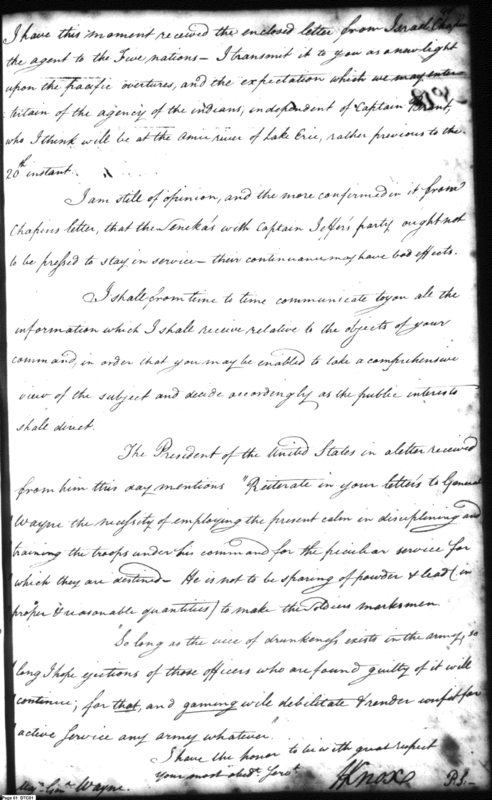 I have this moment received the enclosed letter from Israel Chapin
the agent to the Five nations — I transmit it to you as a new light
upon the pacific overtures, and the expectation which we may enter-
tain of the agency of the indians, independent of Captain Brant,
who I think will be at the Amie river of Lake Erie, rather previous to the
20th instant.
I am still of opinion, and the more confirmed in it from
Chapins letter, that the Seneka's with Captain Jeffer's party ought not
to be pressed to stay in service — their continuance may have bad effects.
I shall from time to time communicate to you all the
information which I shall receive relative to the objects of your
command, in order that you may be enabled to take a comprehensive
view of the subject and decide accordingly as the public interests
shall direct.
The President of the United States in a letter received
from him this day mentions "Reiterate in your letters to General
Wayne the necessity of employing the present calm in disciplining and
training the troops under his command for the peculiar service for
which they are destined — He is not to be sparing of powder & lead (in
proper & reasonable quantities) to make the Soldiers marksmen.
"So long as the vice of drunkeness exists in the army, so
long I hope ejections of those officers who are found guilty of it will
continue; for that, and gaming will debilitate & render unfit for
active service any army whatever."
I have the honor to be with great respect
Your most obedt. Servt.
HKnox
Majr. Genl. Wayne.
P.S. —
Page 81 DTC01